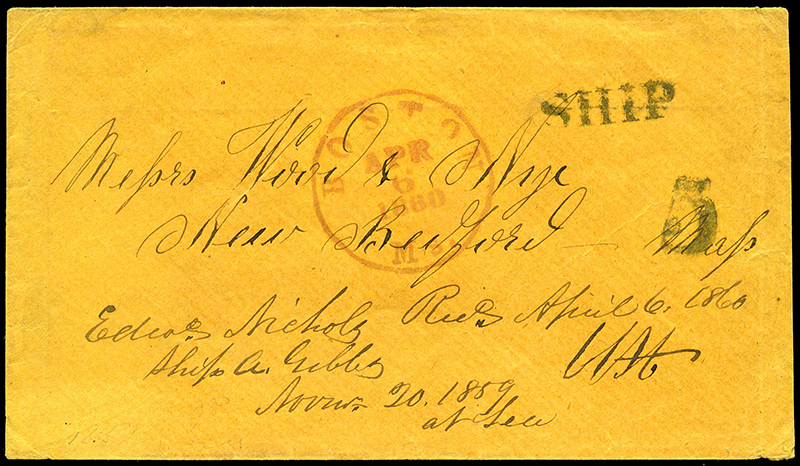 SHIP
BOSTON
APR
6
1860
MS
5
Messrs Wood & Nye
New Bedford - Mass
Edwd Nichols Recd April 6. 1860
Ship A. Gibbs
Novr 20. 1859
at Sea